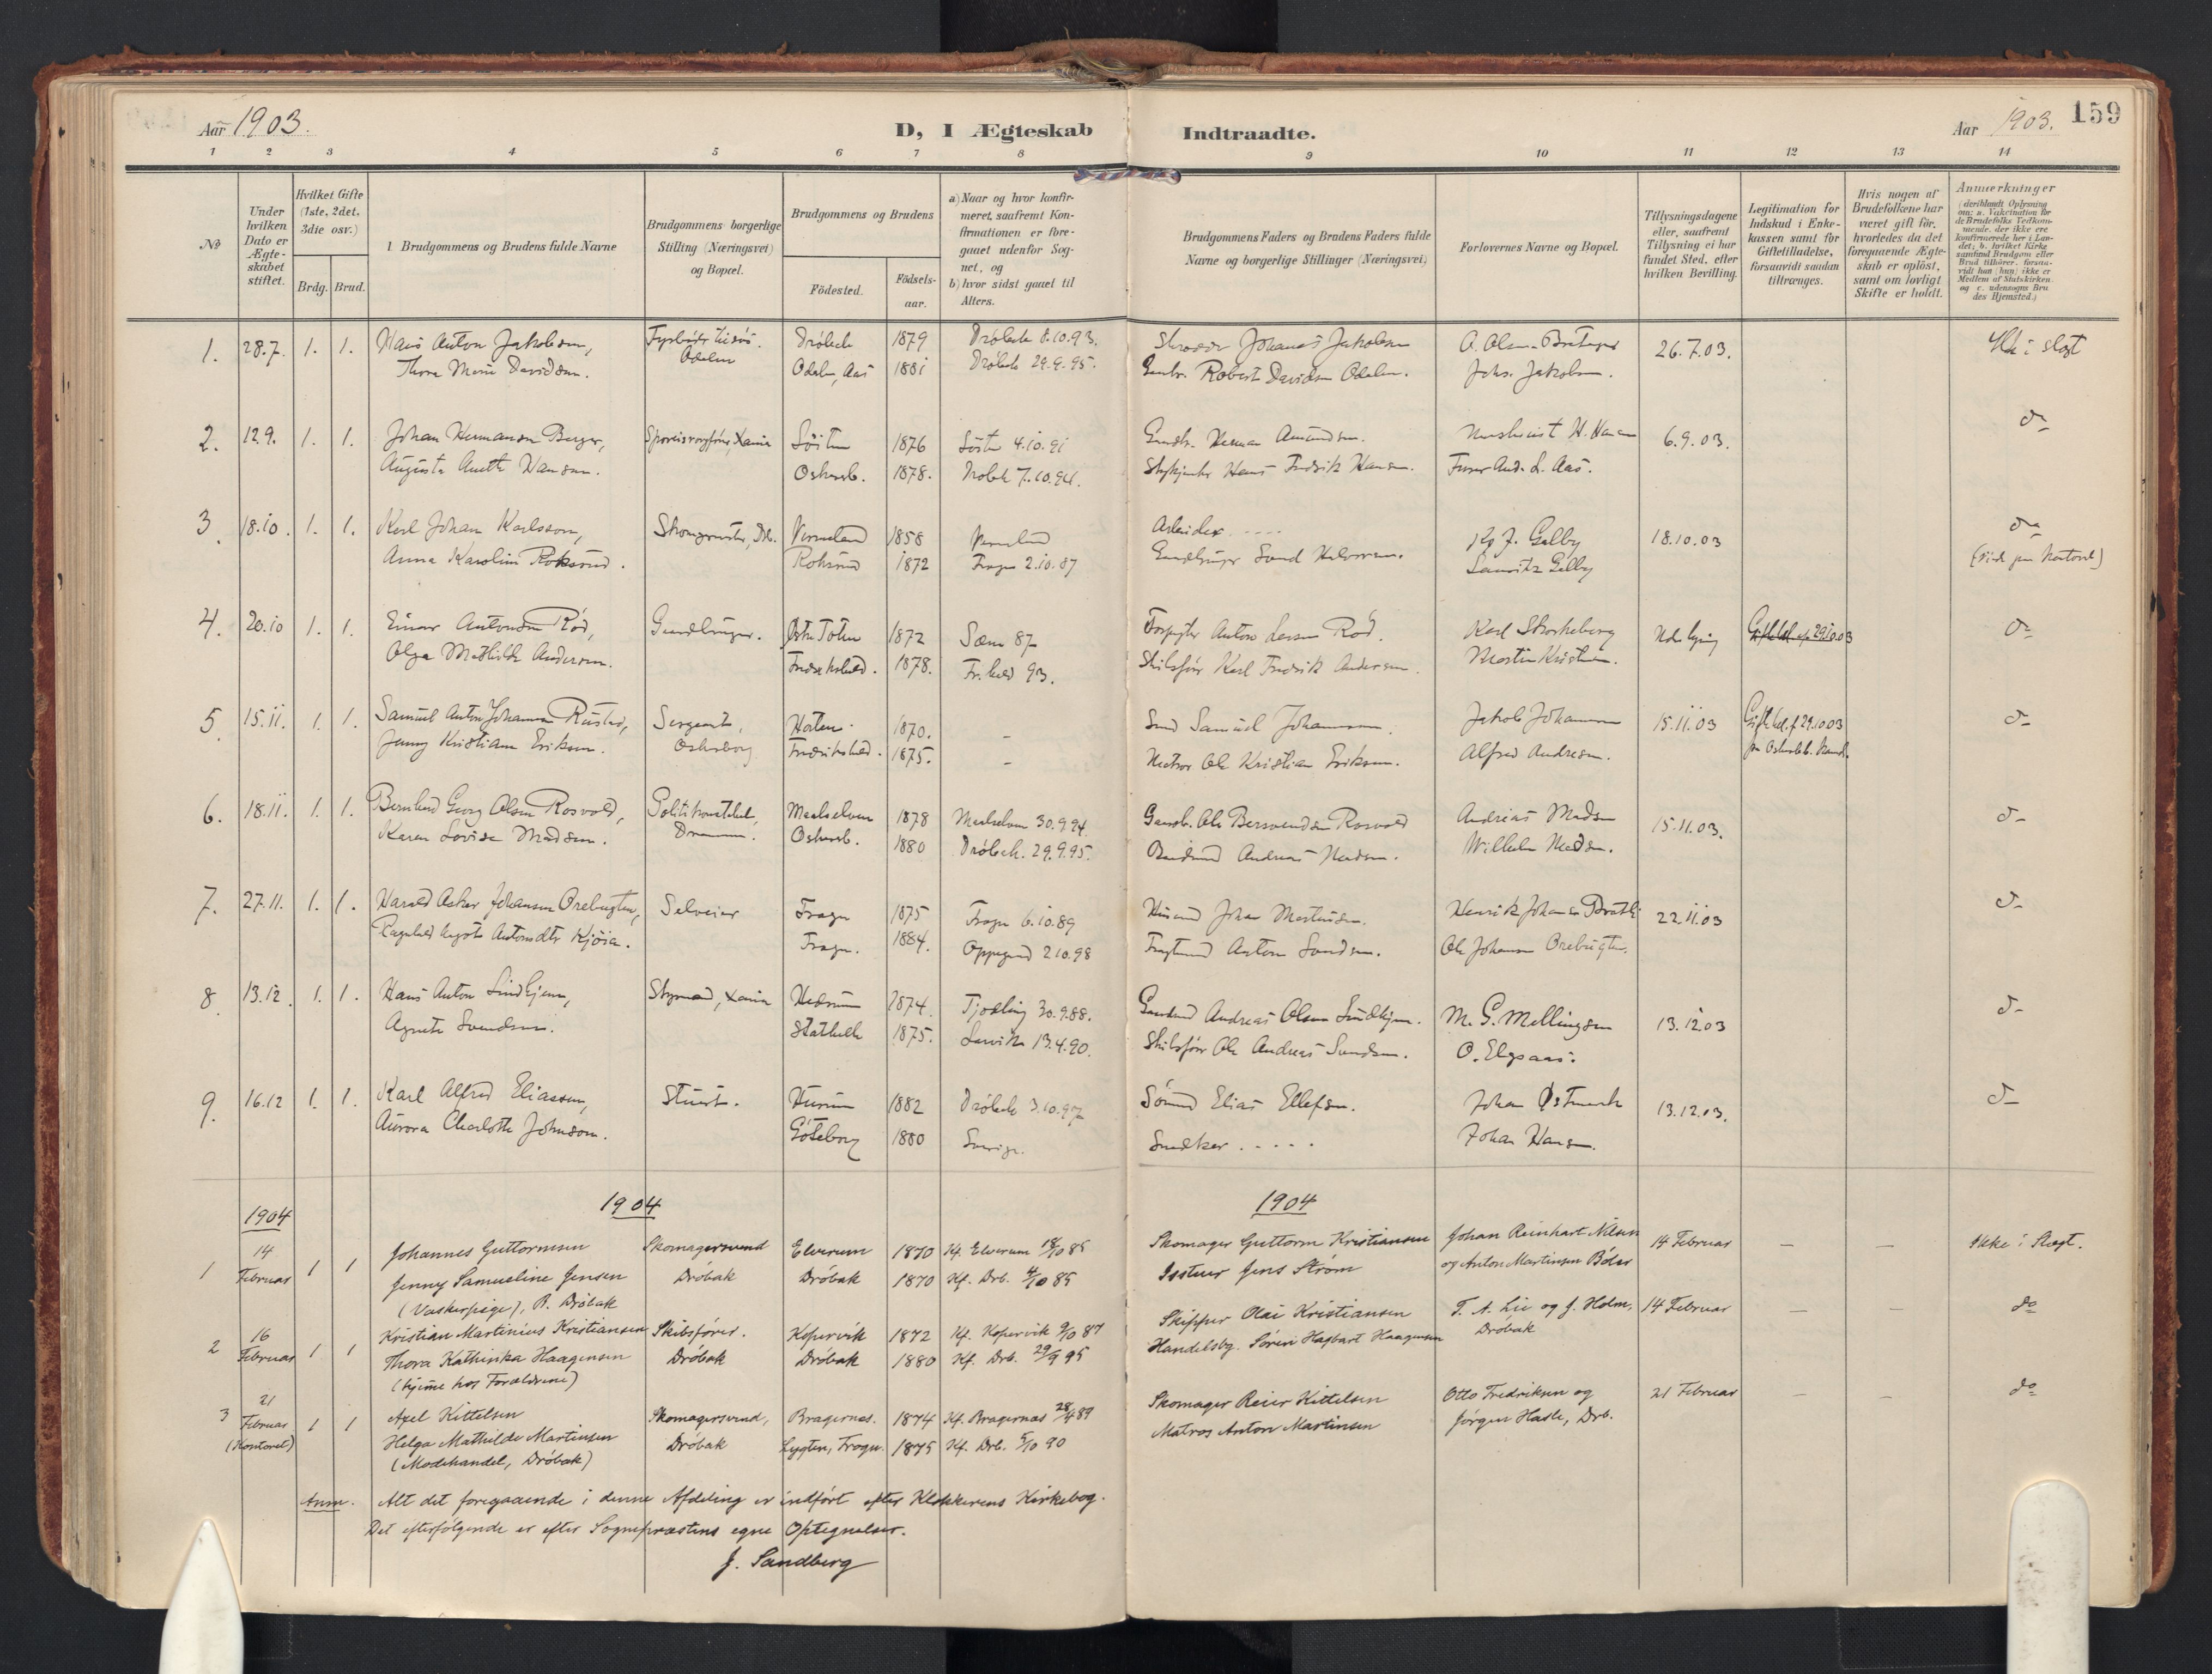 Aar 1903.
D, I Ægteskab
Indtraadte.
Aar 1903.
159
1 2 3 4 5 6 7 8 9 10 11 12 13 14
No
Under hvilken Dato er Ægte-skabet stiftet.
Hvilket Gifte (1ste, 2det, 3die osv.)
Brdg. Brud.
1 Brudgommens og Brudens fulde Navne
Brudgommens borgerlige Stilling (Næringsvei) og Bopæl.
Brudgommens og Brudens
Födested.
Födsels-aar.
a) Naar og hvor konfir-meret, saafremt Kon-firmationen er fore-gaaet udenfor Sog-net, og
b) hvor sidst gaaet til Alters.
Brudgommens Faders og Brudens Faders fulde Navne og borgerlige Stillinger (Næringsvei)
Forlovernes Navne og Bopæl.
Tillysningsdagene eller, saafremt Tillysning ei har fundet Sted, efter hvilken Bevilling.
Legitimation for Indskud i Enke-kassen samt for Giftetilladelse, forsaavidt saadan tiltrænges.
Hvis nogen af Brudefolkene har været gift för, hvorledes da det foregaaende Ægte-skab er oplöst, samt om lovligt Skifte er holdt.
Anmærkninger (deriblandt Oplysning om: a. Vakcination for de Brudefolks Vedkom-mende, der ikke ere konfirmerede her i Lan-det; b. hvilket Kirke-samfund Brudgom eller Brud tilhörer, forsaa-vidt han (hun) ikke er Medlem af Statskirken og c. udensogns Bru-des Hjemsted.)
1. 28.7. 1. 1. Hans Anton Jakobsen, Odalen Dröbak 1879 Dröbak 8.10.93. Johanes Jakobsen 26.7.03. Ikke i slægt
Thora Marie Davidsen. Odalen, Aas 1881 Dröbak 29.9.95. Robert Davidsen Odalen. Johs. Jakobsen.
2. 12.9. 1. 1. Johan Hermansen Berger, 1876 4.10.91 Herman Amundsen. 6.9.03. do
Augusta Anette Hansen. Oskarsb. 1878. Dröbak 7.10.94. Hans Fredrik Hansen. And. L. Aas.
3. 18.10. 1. 1. Karl Johan Karlsson, Drb. Vermland 1858 Vermland Arbeider ..... J. Galby 18.10.03 do
Anna Karoline Roksrud. Roksrud 1872 Frogn 2.10.87 Lauritz Galby
4. 20.10 1. 1. Einar Antonsen Röd, Gaardbruger. Østre Toten 1872 Anton Larsen Röd. Karl Storkeborg 29.10.03 do
Olga Mathilde Andersen. Fredrikshald. 1878. Fr.hald 93. Skibsförer Karl Fredrik Andersen. Martin Kristiansen.
5. 15.11. 1. 1. Samuel Anton Johansen Rustad, Sergeant, Holen. 1870. - Samuel Johannesen. Jakob Johansen 15.11.03 29.10.03 do
Jenny Kristiane Eriksen. Oskarsborg Fredrikshald. 1875. - Ole Kristian Eriksen. Alfred Andresen.
6. 18.11. 1. 1. Bernhard Georg Olsen Rosvold, Politikonstabel, Maalselven 1878 Maalselven 30.9.94 Rosvold Andreas Madsen 15.11.03. do
Karen Lovise Madsen. Drammen. Oskarsb. 1880 Dröbak. 29.9.95. Andreas Madsen. Wilhelm Madsen.
7. 27.11. 1. 1. Harald Asker Johansen Orebugten, Selveier Frogn 1875 Frogn 6.10.89 Johan Martinsen. Henrik Johansen 22.11.03 do
Ragnhild Antonsdtr. Kjöia. Frogn. 1884. Oppegaard 2.10.98 Anton Ole Johansen Orebugten.
8. 13.12. 1. 1. Hans Anton Lindhjem, Styrmand, Xania Hedrum 1874. Tjodling 30.9.88. Andreas Olsen Lindhjem. M. G. Mellingsen 13.12.03 do
Agnete Svendsen. Stathelle 1875. Larvik 13.4.90. Skibsför Ole Andreas Svendsen. O. Elgsaas.
9. 16.12 1. 1. Karl Alfred Eliassen, Stuert. Hurum 1882 Dröbak 3.10.97 Sömand Elias Ellefsen. Johan Østmark 13.12.03. do
Aurora Charlotte Johnson. Göteborg 1880 Sverige. Snedker ..... Johan Hansen.
1904 1904 1904
1 14 Februar 1 1 Johannes Guttormsen Skomagersvend Elverum 1870 Kf. Elverum 18/10 85 Skomager Guttorm Kristiansen Johan Reinhart Nilsen 14 Februar — — Ikke i Slægt.
Jenny Samueline Jensen Dröbak Dröbak 1870 Kf. Drb. 4/10 85 Jens Ström og Anton Martinsen
(Vaskerpige), B. Dröbak
2 16 Februar 1 1 Kristian Martinius Kristiansen Skibsförer. Kopervik 1872 Kf. Kopervik 9/10 87 Skipper Olai Kristiansen T. A. Lie og J. Holm, 14 Februar — — do
Thora Kathinka Haagensen Dröbak Dröbak 1880 Kf. Drb. 29/9 95 Handelsbg. Sören Hagbart Haagensen Dröbak
(hjeme hos Forældrene)
3 21 Februar (Kontoret) 1 1 Axel Kittelsen Skomagersvend, Bragernes. 1874 Kf. Bragernes 28/4 89 Skomager Reier Kittelsen Otto Fredriksen og 21 Februar — — do
Helga Mathilde Martinsen Dröbak Lygten, Frogn. 1875 Kf. Drb. 5/10 90 Matros Anton Martinsen Jörgen Hasle, Drb.
(Modehandel, Dröbak)
Anm. Alt det foregaaende i denne Afdeling er indfört efter Klokkerens Kirkebog.
Det efterfölgende er efter Sognepræstens egne Optegnelser.
J. Sandberg